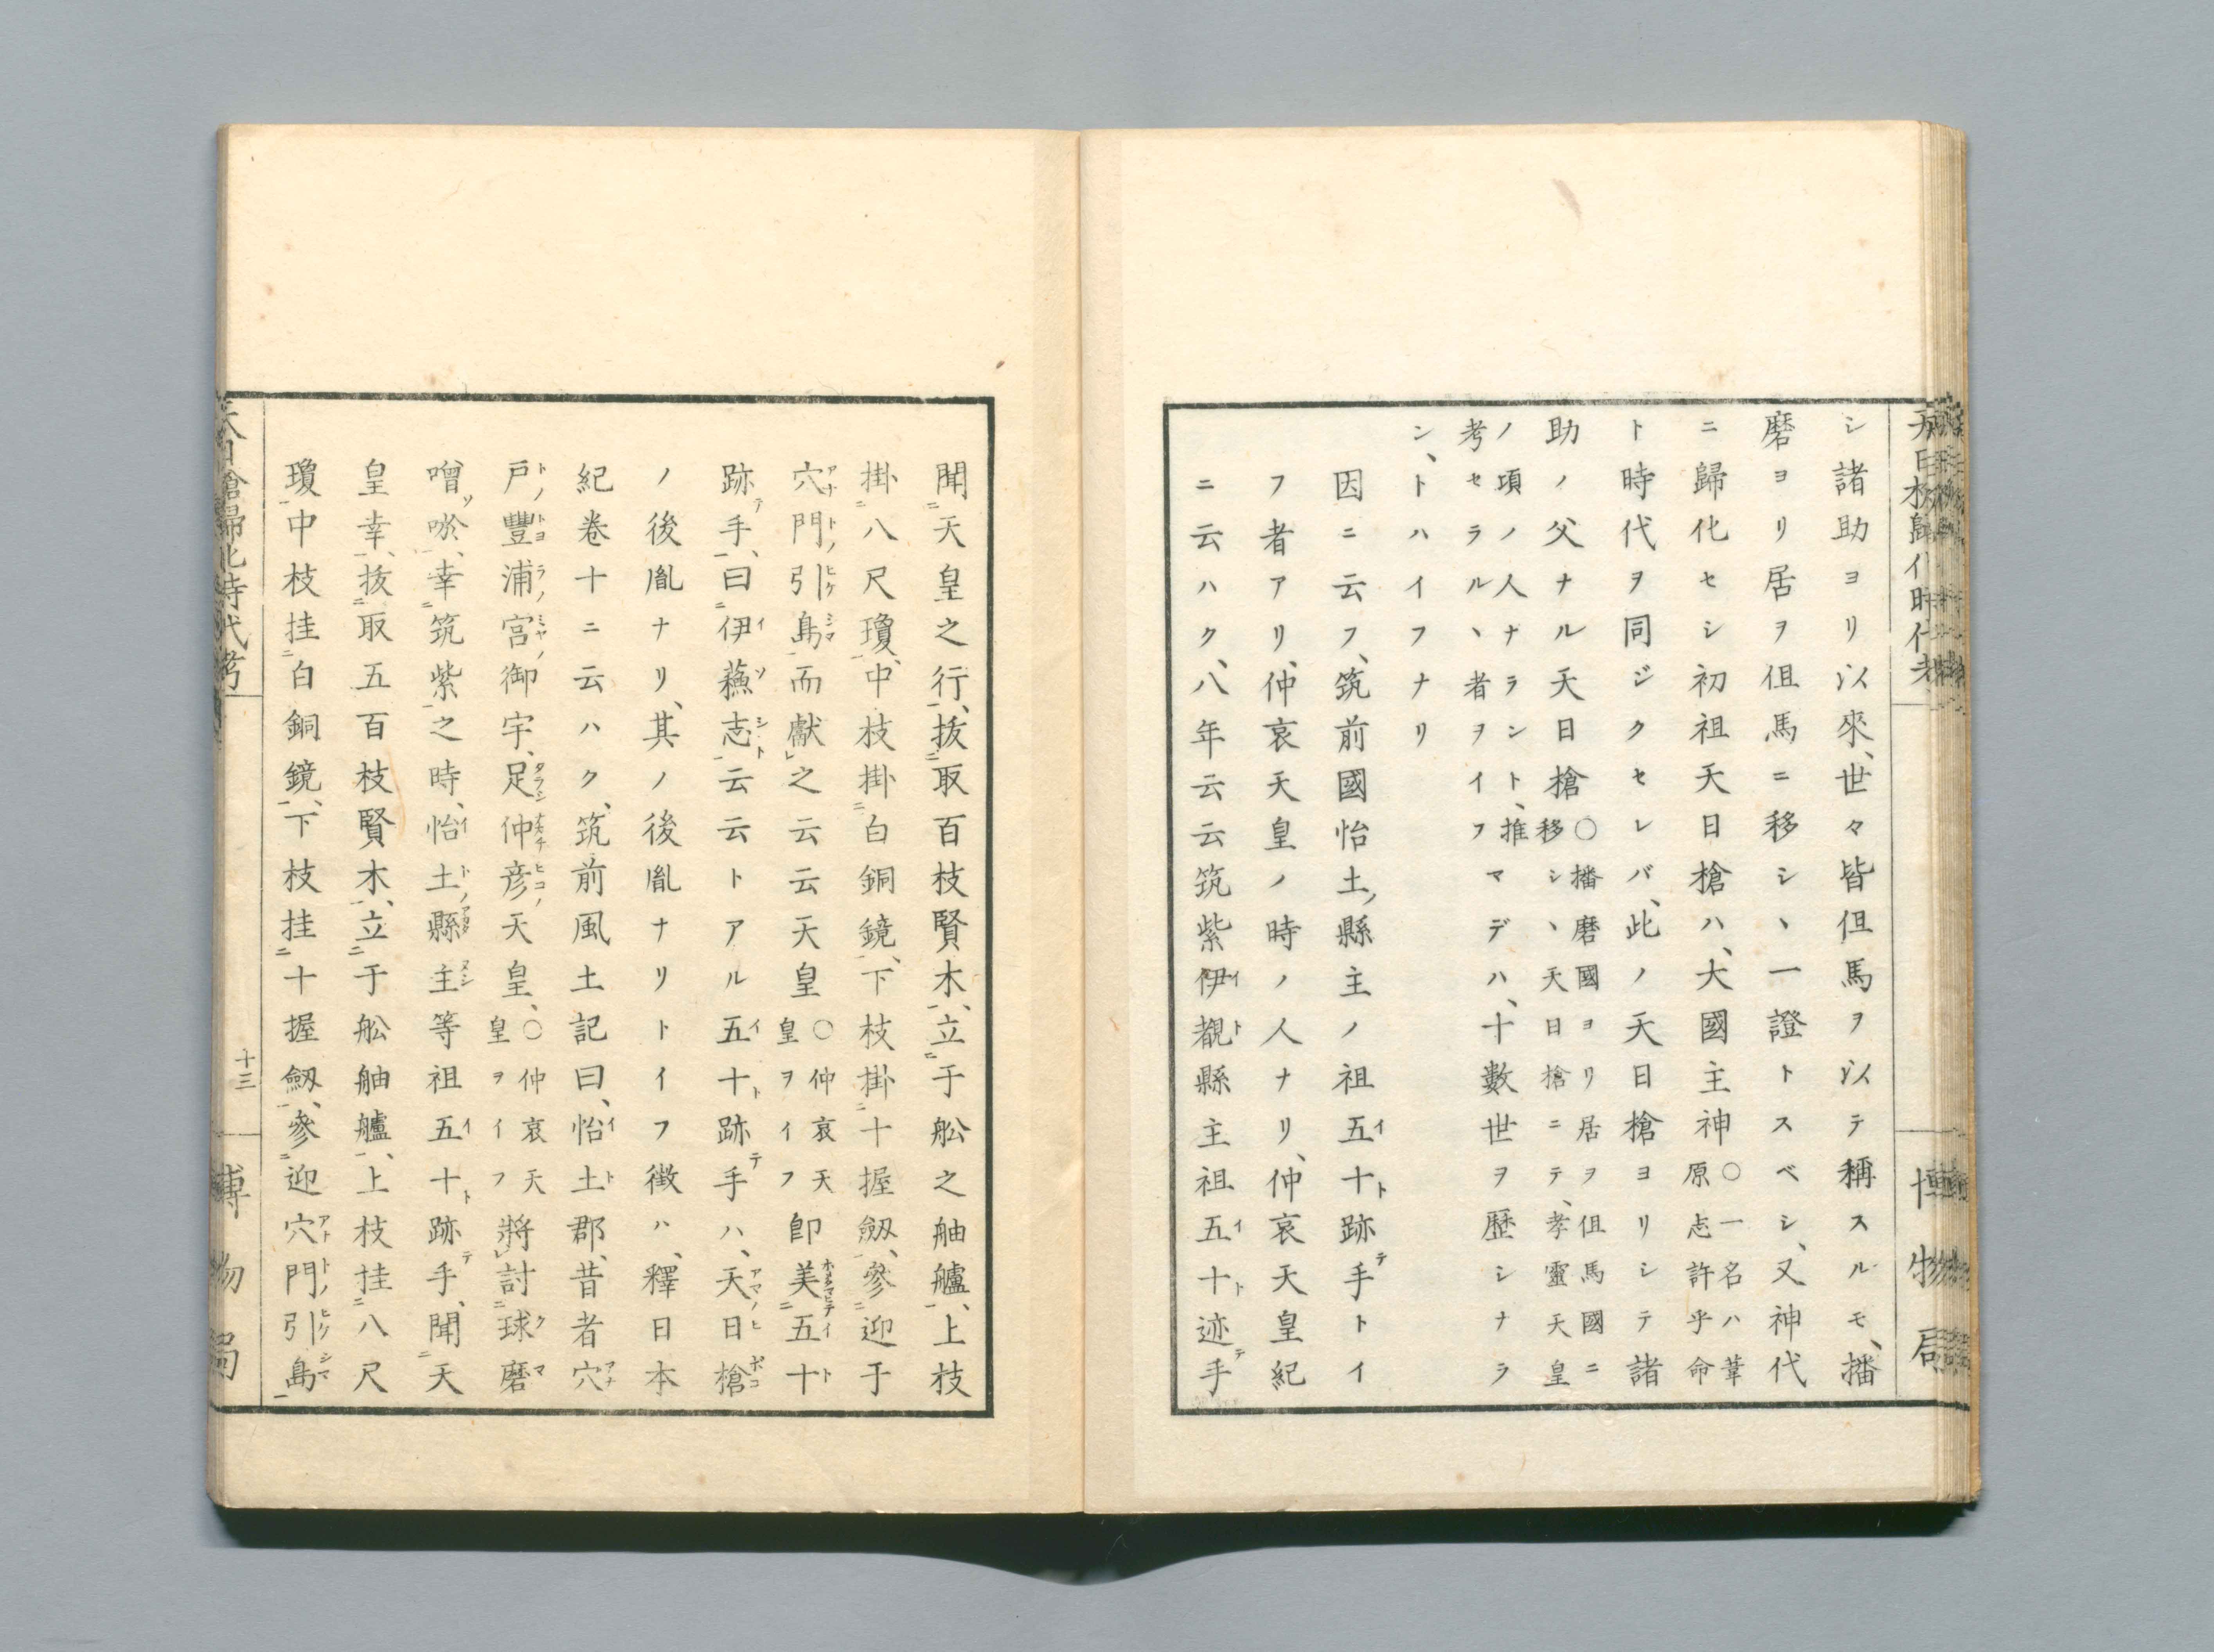 シ諸助ヨリ以來、世々皆但馬ヲ以テ稱スルモ、播
磨ヨリ居ヲ但馬ニ移シヽ一證トスベシ、又神代
ニ歸化セシ初祖天日槍ハ、大國主神○一名ハ葦原志許乎命
ト時代ヲ同ジクセレバ、此ノ天日槍ヨリシテ諸
助ノ父ナル天日槍○播磨國ヨリ居ヲ但馬國ニ移シヽ天日槍ニテ、孝靈天皇
ノ項ノ人ナラント、推考セラルヽ者ヲイフマデハ、十數世ヲ歷シナラ
ン、トハイフナリ
因ニ云フ、筑前國怡土縣主ノ祖五十跡手トイ
フ者アリ、仲哀天皇ノ時ノ人ナリ、仲哀天皇紀
ニ云ハク、八年云云筑紫伊覩縣主祖五十迹手
聞天皇之行、拔取百枝賢木、立于舩之舳艫、上枝
掛八尺瓊、中枝掛白銅鏡、下枝掛十握劔、參迎于
穴門引島而獻之云云天皇○仲哀天皇ヲイフ卽美五十
跡手、曰伊蘓志云云トアル五十跡手ハ、天日槍
ノ後胤ナリ、其ノ後胤ナリトイフ徴ハ、釋日本
紀卷十ニ云ハク、筑前風土記曰、怡土郡、昔者穴
戸豐浦宮御宇、足仲彦天皇、○仲哀天皇ヲイフ將討球磨
噌唹、幸筑紫之時、怡土縣主等祖五十跡手、聞天
皇幸、拔取五百枝賢木、立于舩舳艫、上枝挂八尺
瓊中枝挂白銅鏡、下枝挂十握劔、參迎穴門引島
天日槍歸化時代考
十三
博物局